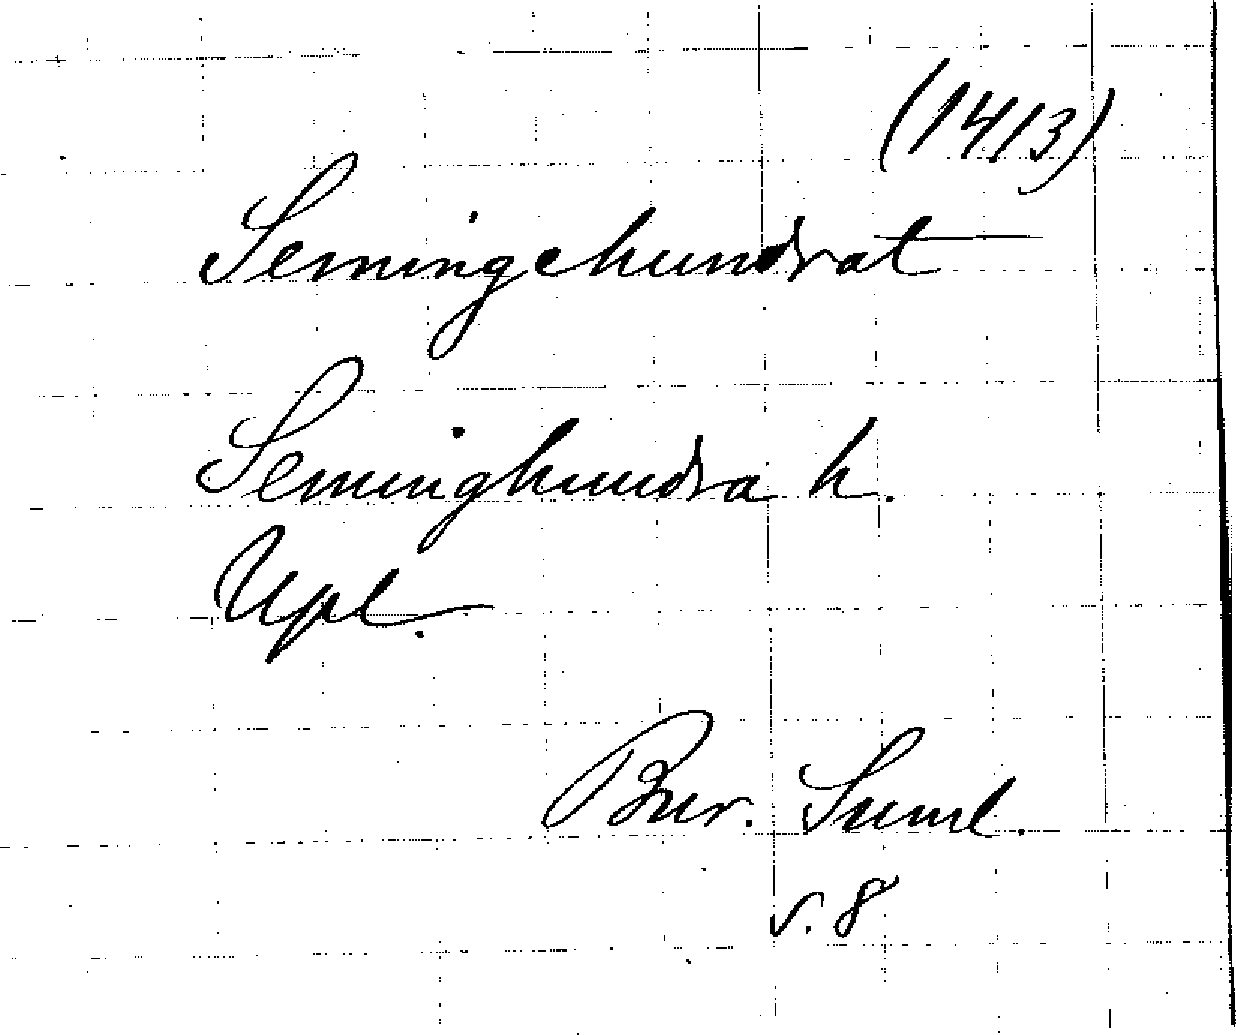 (1413)
Semingehundrat
Seminghundra h.
Upl.
Bur. Suml.
s. 8